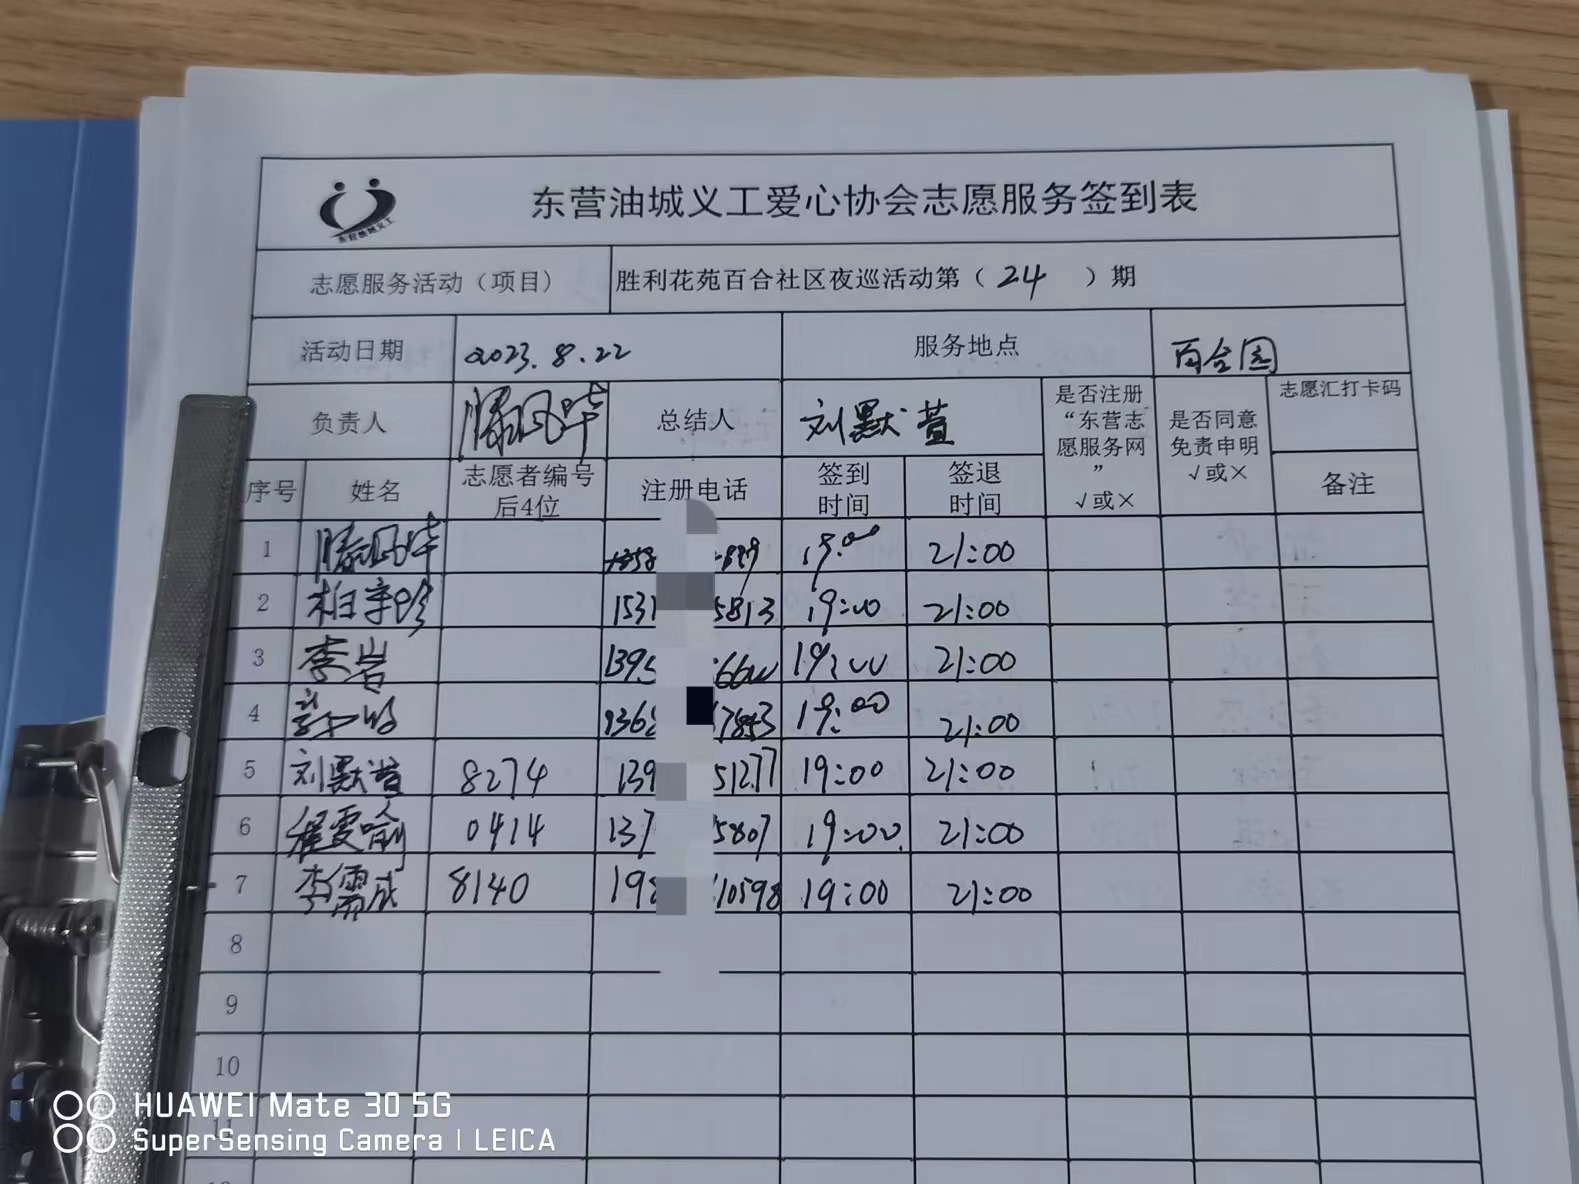 东营油城义工爱心协会志愿服务签到表
东营油城义工
志愿服务活动（项目） 胜利花苑百合社区夜巡活动第（ 24 ）期
活动日期 2023.8.22 服务地点 百合园
负责人 滕凤华 总结人 刘默萱 是否注册“东营志愿服务网”√或× 是否同意免责申明√或× 志愿汇打卡码
序号 姓名 志愿者编号后4位 注册电话 签到时间 签退时间 备注
1 滕凤华 19:00 21:00
2 1531 5813 19:00 21:00
3 李岩 1395 19:00 21:00
4 1936 19:00 21:00
5 刘默萱 8274 139 51277 19:00 21:00
6 程雯喻 0414 137 5807 19:00 21:00
7 李儒成 8140 198 10598 19:00 21:00
8
9
10
11
HUAWEI Mate 30 5G
SuperSensing Camera | LEICA